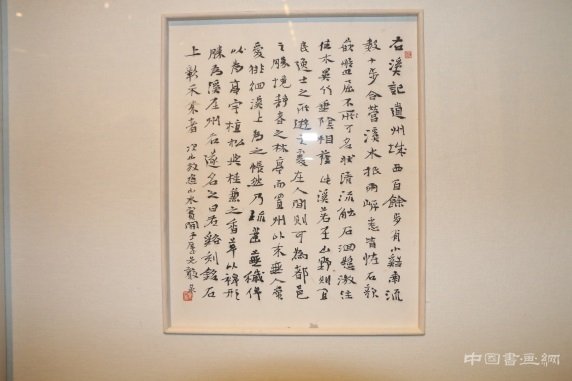 右溪記道州城西百餘步有小谿南流
數十步合營溪水抵兩岸悉皆怪石欹
嵌盤屈不可名狀清流觸石洄懸激注
佳木異竹垂陰相蔭此溪若在山野則宜
民逸士之所遊處在人間則可為都邑
之勝境靜者之林亭而置州以来無人賞
愛徘徊溪上為之悵然乃疏蕪穢俾
以為亭宇植松與桂兼之香草以裨形
勝為溪在州右遂名之曰右谿刻銘石
上彰示来者
中國書畫網